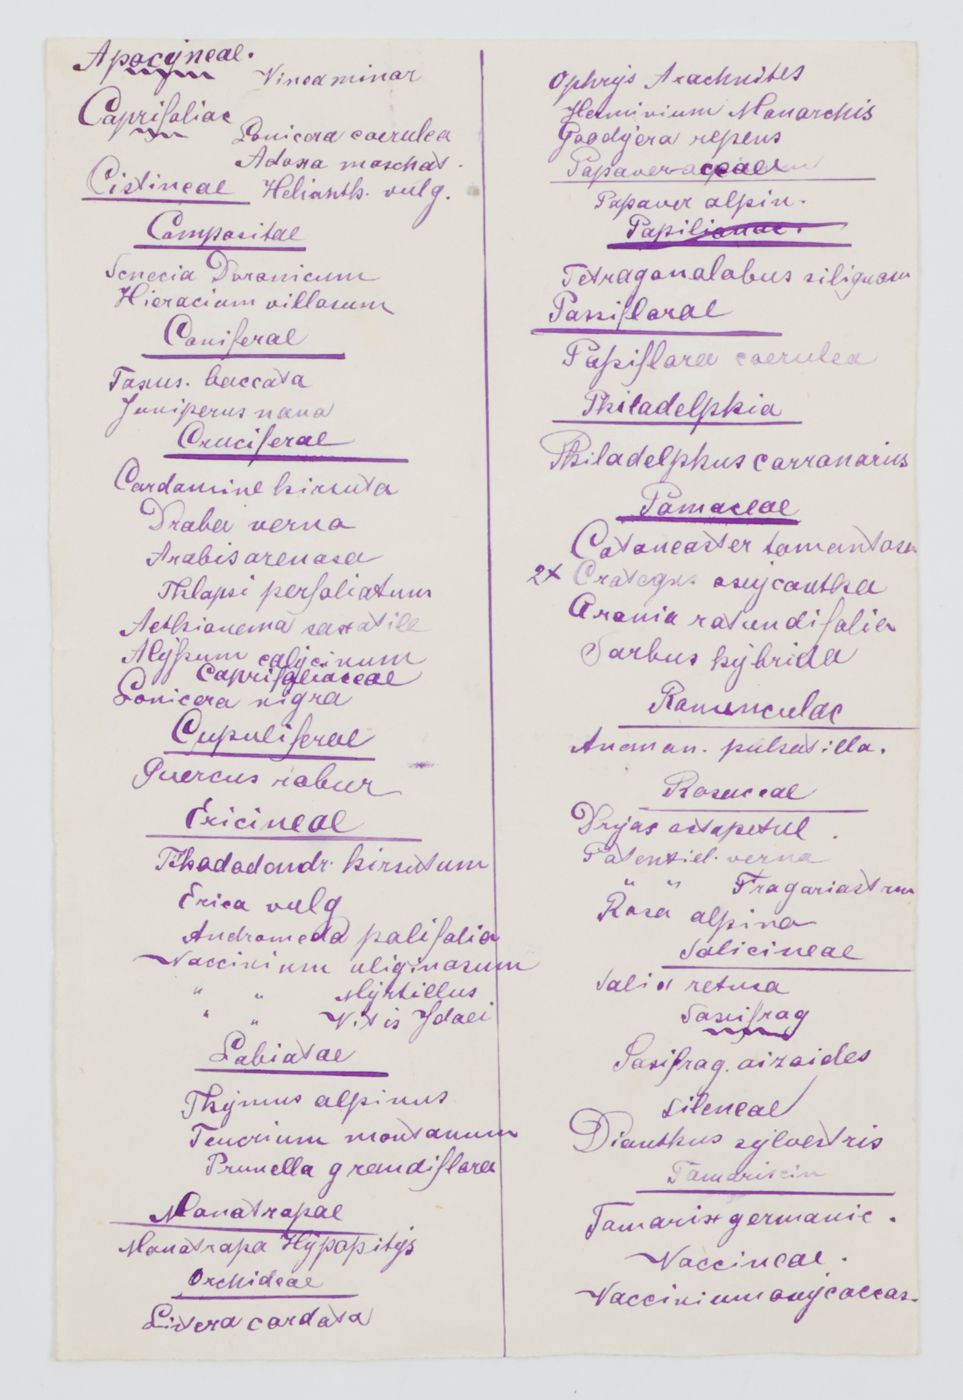 Apocyneae.
Vinca minor
Caprifoliac
Lonicera coerulea
Adoxa moschat.
Cistineae Helianth. vulg.
Compositae
Senecia Doronicum
Hieracium villosum
Coniferae
Taxus. baccata
Juniperus nana
Cruciferae
Cardamine hirsuta
Draba verna
Arabis arenosa
Thlapsi perfoliatum
Aethionema saxatile
Alyssum calycinum
Caprifoliaceae
Lonicera nigra
Cupuliferae
Quercus robur
Ericineae
Rhododondr. hirsutum
Erica vulg
Andromeda polifolia
Vaccinium uliginosum
" " Myrtillus
" " Vitis Idaei
Labiatae
Thymus alpinus
Teucrium montanum
Prunella grandiflora
Monotropae
Monotropa Hypopitys
Orchideae
Listera cordata
Ophrys Arachnites
Herminium Monorchis
Goodyera repens
Papaveraceae
Papaver alpin.
Papilionac.
Tetragonolobus siliquosu
Passiflorae
Passiflora coerulea
Philadelphia
Philadelphus corronarius
Pomaceae
Cotoneaster tomentosu
2x Crategus oxycantha
Aronia rotundifolia
Sorbus hybrida
Ranunculac
Anemon. pulsatilla.
Rosaceae
Dryas octopetul.
Potentiel. verna
" " Fragariastrum
Rosa alpina
Salicineae
Salix retusa
Saxifrag
Saxifrag. aizoides
Sileneae
Dianthus sylvestris
Tamariscin
Tamarix germanic.
Vaccineae.
Vaccinium oxycoccos.